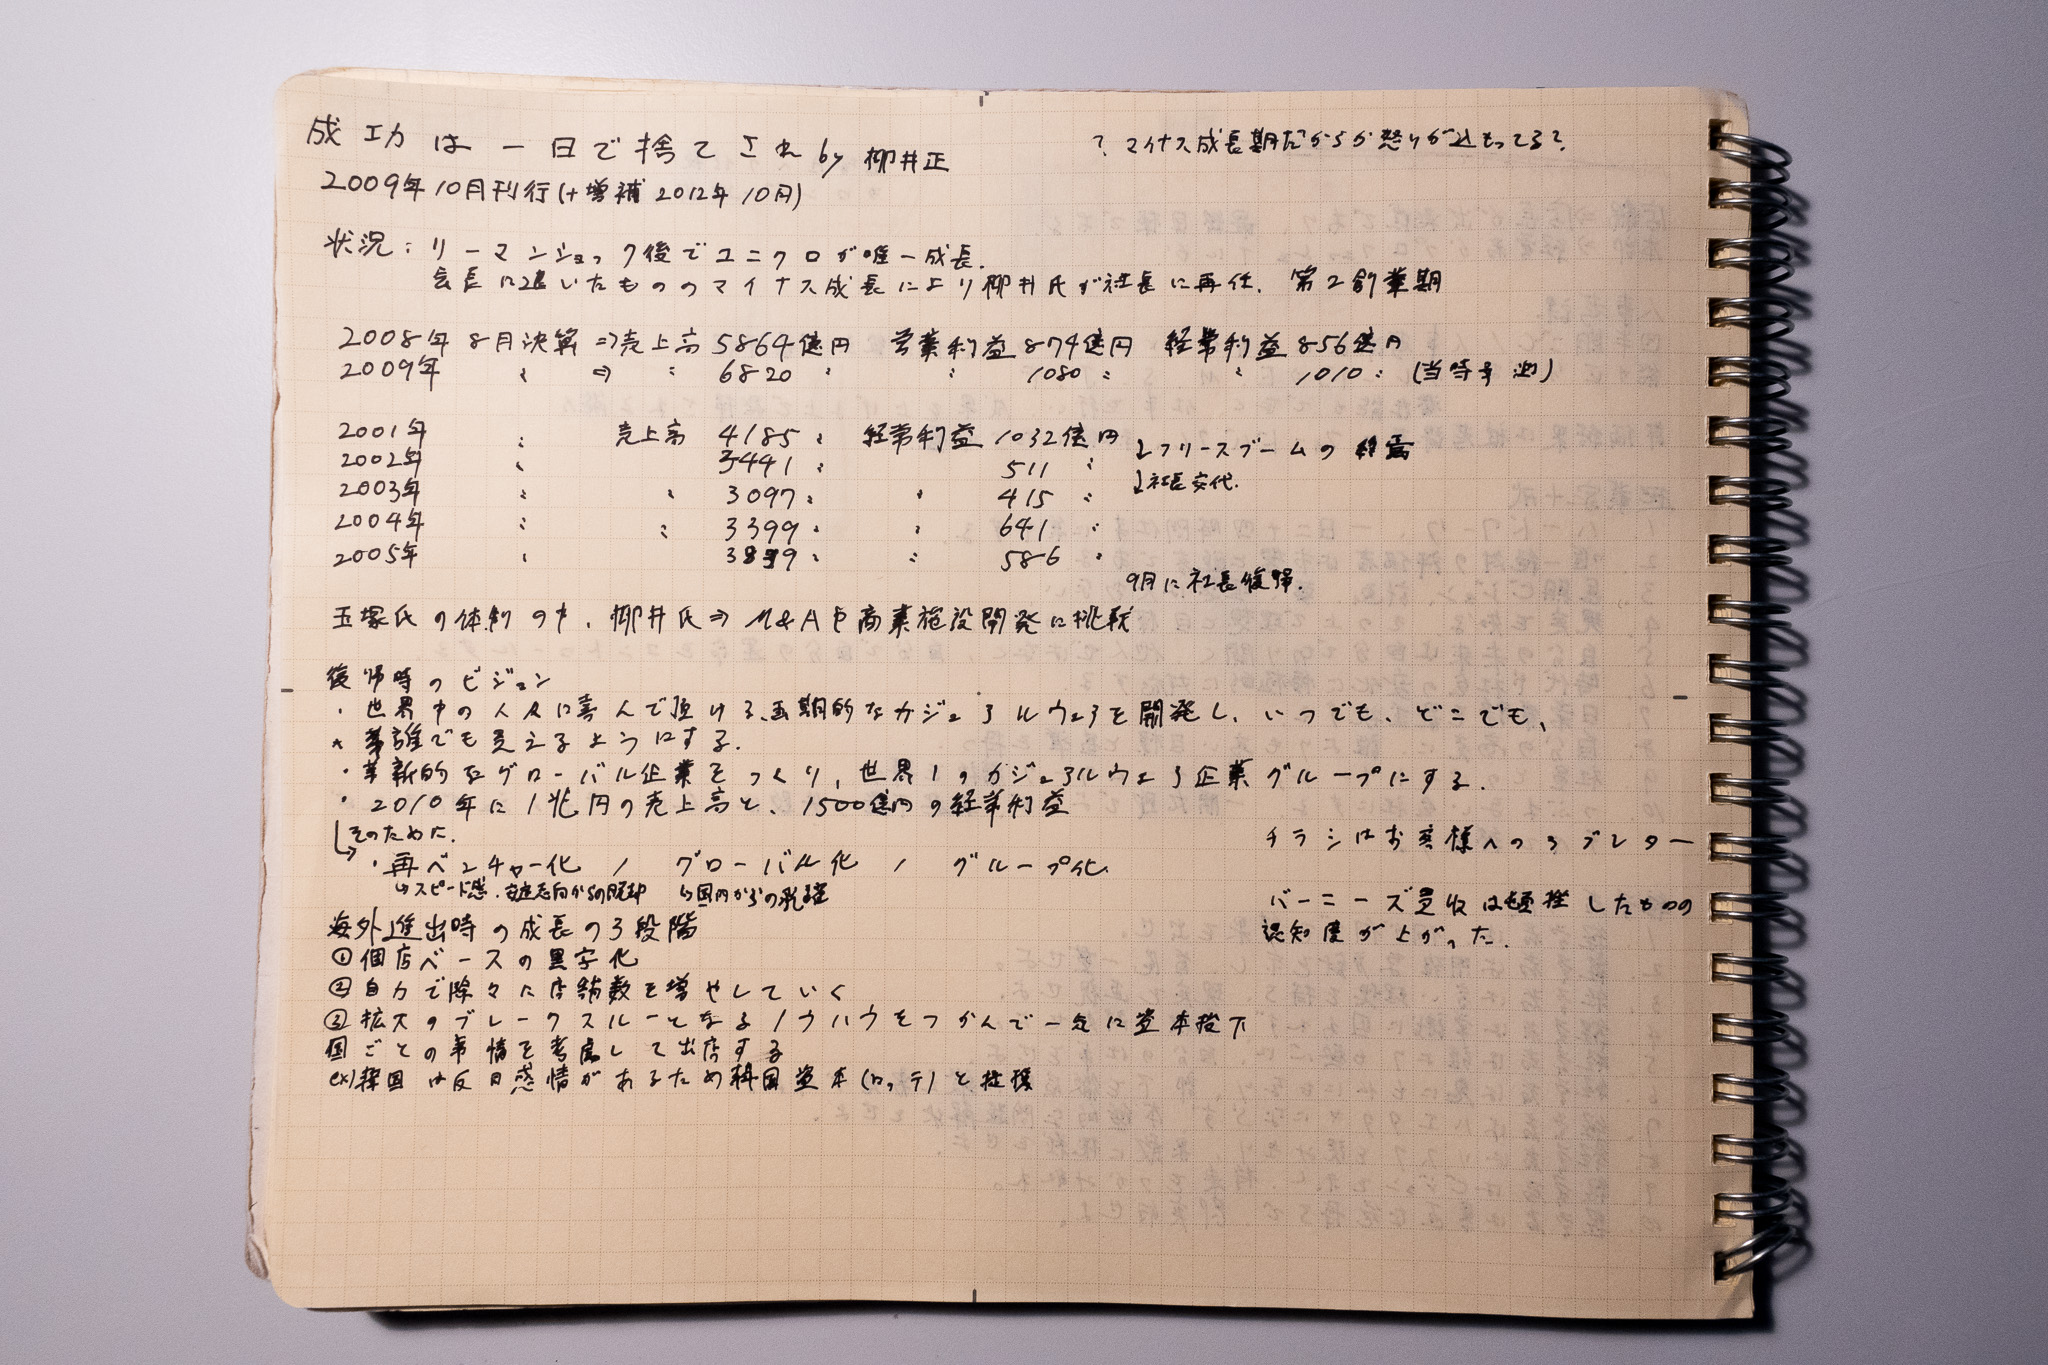 成功は一日で捨てされ by 柳井正
? マイナス成長期だからか怒りが込もってる?
2009年10月刊行(+増補 2012年10月)
状況: リーマンショック後でユニクロが唯一成長.
会長に退いたもののマイナス成長により柳井氏が社長に再任. 第2創業期
2008年 8月決算 ⇒売上高 5864億円 営業利益 874億円 経常利益 856億円
2009年 〃 ⇒ 〃 6820 〃 1080 〃 〃 1010 〃 (当時予測)
2001年 〃 売上高 4185 〃 経常利益 1032億円 ↓フリースブームの終焉
2002年 〃 3441 〃 511 〃
2003年 〃 〃 3097 〃 〃 415 〃 ↓社長交代.
2004年 〃 〃 3399 〃 〃 641 〃
2005年 〃 3839 〃 〃 586 〃
9月に社長復帰.
玉塚氏の体制の中、柳井氏⇒M&Aや商業施設開発に挑戦
復帰時のビジョン
・世界中の人々に喜んで頂ける、画期的なカジュアルウェアを開発し、いつでも、どこでも、
誰でも買えるようにする.
・革新的なグローバル企業をつくり、世界1のカジュアルウェア企業グループにする.
・2010年に1兆円の売上高と、1500億円の経常利益
そのために.
チラシはお客様へのラブレター
・再ベンチャー化 / グローバル化 / グループ化
↳スピード感・安定志向からの脱却 ↳国内からの
バーニーズ買収は頓挫したものの
海外進出時の成長の3段階
認知度が上がった.
①個店ベースの黒字化
②自力で除々に店舗数を増やしていく
③拡大のブレークスルーとなるノウハウをつかんで一気に資本投下
国ごとの事情を考慮して出店する
ex)韓国は反日感情があるため韓国資本(ロッテ)と提携